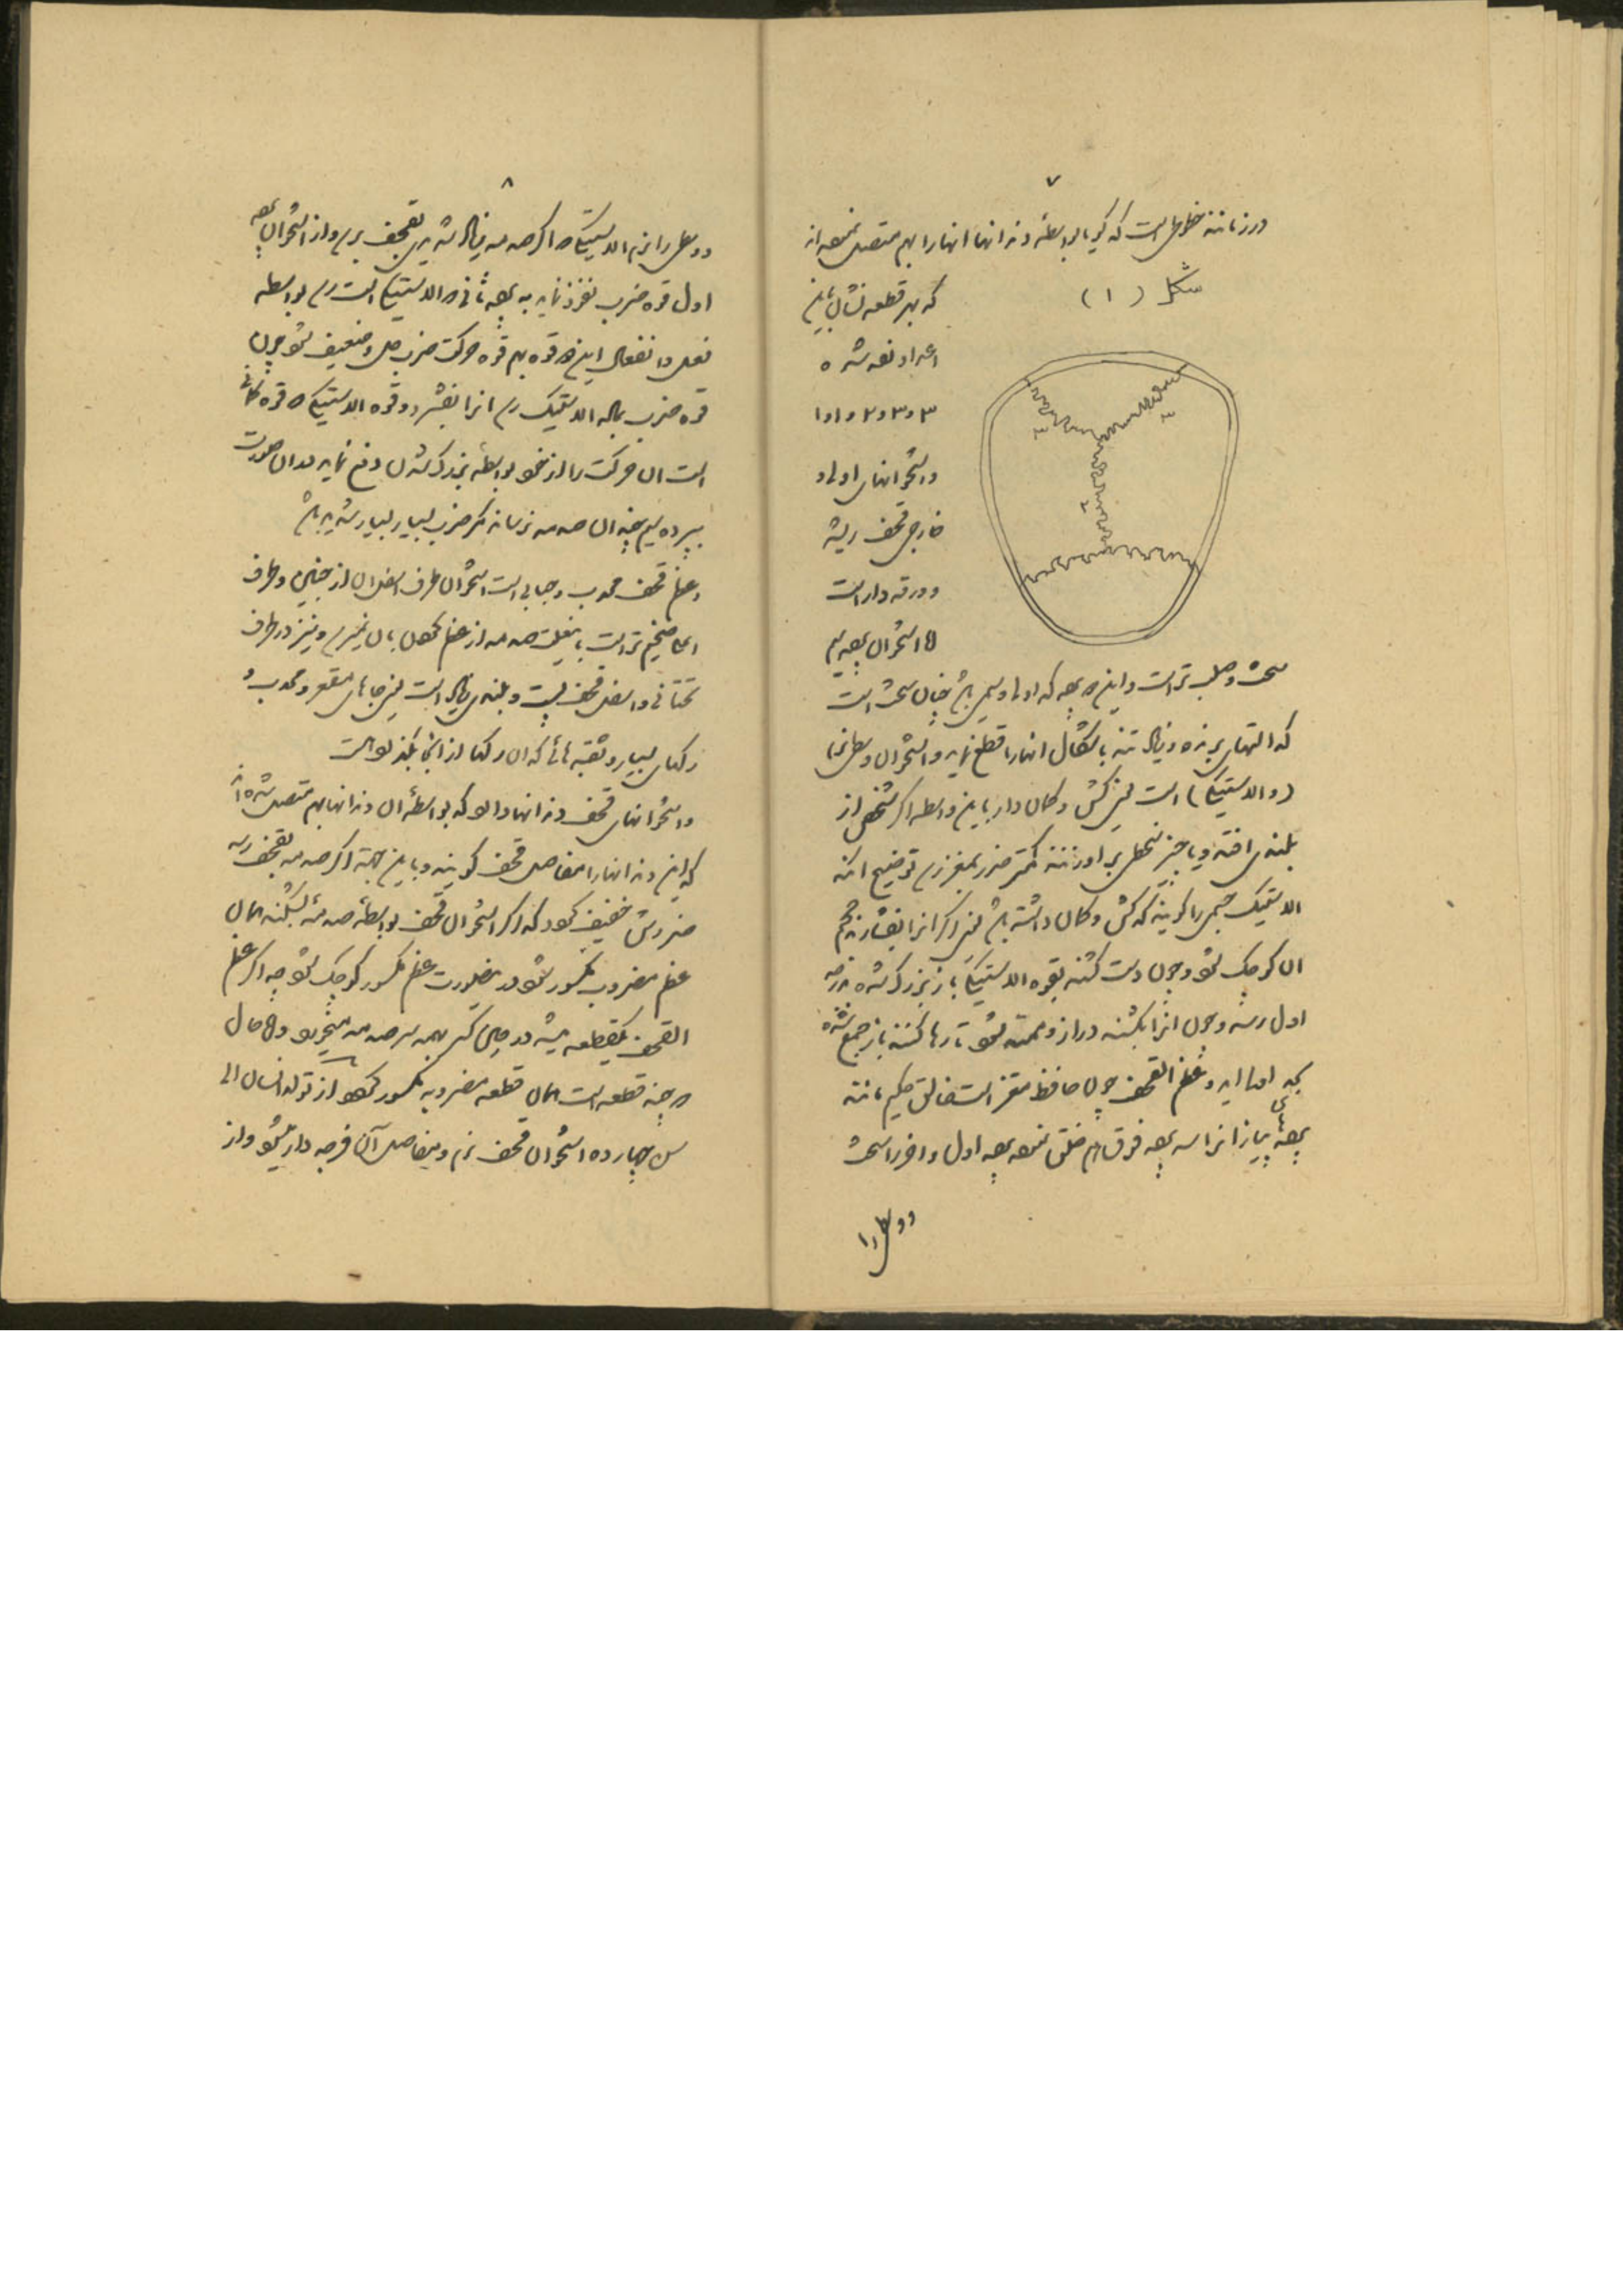 ۷
درز مانند خطوطی است که گویا بواسطه دندانها انهارا بهم متصل نموده‌اند
شکل (۱)
که بهر قطعه نشان باین
اعداد نموده شده
۳ و ۳ و ۲ و ۱ و ۱
و استخوانهای اولی و
خارجی قحف ریشه
و ورقه دار است
اما استخوان پرده سیم
سخت و صلب تر است و این دو پرده که اولی و سیمی باشد چنان سخت است
که التهای برنده و زیاد تند باشکال انهارا قطع نماید و استخوان وسطی نرم
(و الاستیکی) است یعنی کش و کمان دار باین واسطه اگر شخص از
بلندی افتد و یا چیز ثقیلی بر او زنند کمتر ضرر بمغز رسد توضیح انکه
الاستیک جسمی را گویند که کش و کمان داشته باشد یعنی اگر انرا بفشارند حجم
ان کوچک شود و چون دست کشند بقوه الاستیکی باز بزرگ شده بدرجه
اول رسد و چون انرا بکشند دراز و ممتد شود تا رها کنند باز جمع شده
بجای اول اید و عظم القحف چون حافظ مغز است خالق حکیم مانند
پرده‌های پیاز انرا سه پرده فوق هم خلق نموده پرده اول و اخر را سخت
۸
و وسطی را نرم الاستیکی که اگر صدمه زیاد شدیدی بقحف برسد و از استخوان پرده
اول قوه ضرب نفوذ نماید به پرده ثانی که الاستیکی است رسد بواسطه
فعل و انفعال این دو قوه بهم قوه حرکت ضرب حل و ضعیف شود چون
قوه ضرب بماده الاستیک رسد انرا بفشرد و قوه الاستیکی که قوه کمانی
است ان حرکت را از خود بواسطه بزرگ شدن دفع نماید بدان صورت
بپرده سیم چندان صدمه نرساند مگر ضرب بسیار بسیار شدید باشد
و عظم قحف محدب و حبابی است استخوان طرف اسفل ان از جبین و طرف
اعلا ضخیم تر است باینعلت صدمه از عظم کحل بان نمیرسد و نیز در طرف
تحتانی و اسفل قحف پست و بلندی زیاد است یعنی جاهای مقعر و محدب و
رگهای بسیار و ثقبه هائی که ان رگها از انجا بگذرد است
و استخوانهای قحف دندانها دارد که بواسطه ان دندانها بهم متصل شده‌اند
که این دندانها را مفاصل قحف گویند و باین جهة اگر صدمه بقحف رسد
ضررش خفیف گردد که اگر استخوان قحف بواسطه صدمه بشکند همان
عظم مضروب مکسور شود در اینصورت عظم مکسور کوچک شود چه اگر عظم
القحف یکقطعه میشد در حین کسر همه سر صدمه میخورد و در حال
که چند قطعه است همان قطعه مضروبه مکسور گردد از تولد انسان الی
سن چهارده استخوان قحف نرم و مفاصل آن فرجه دار میشود و از